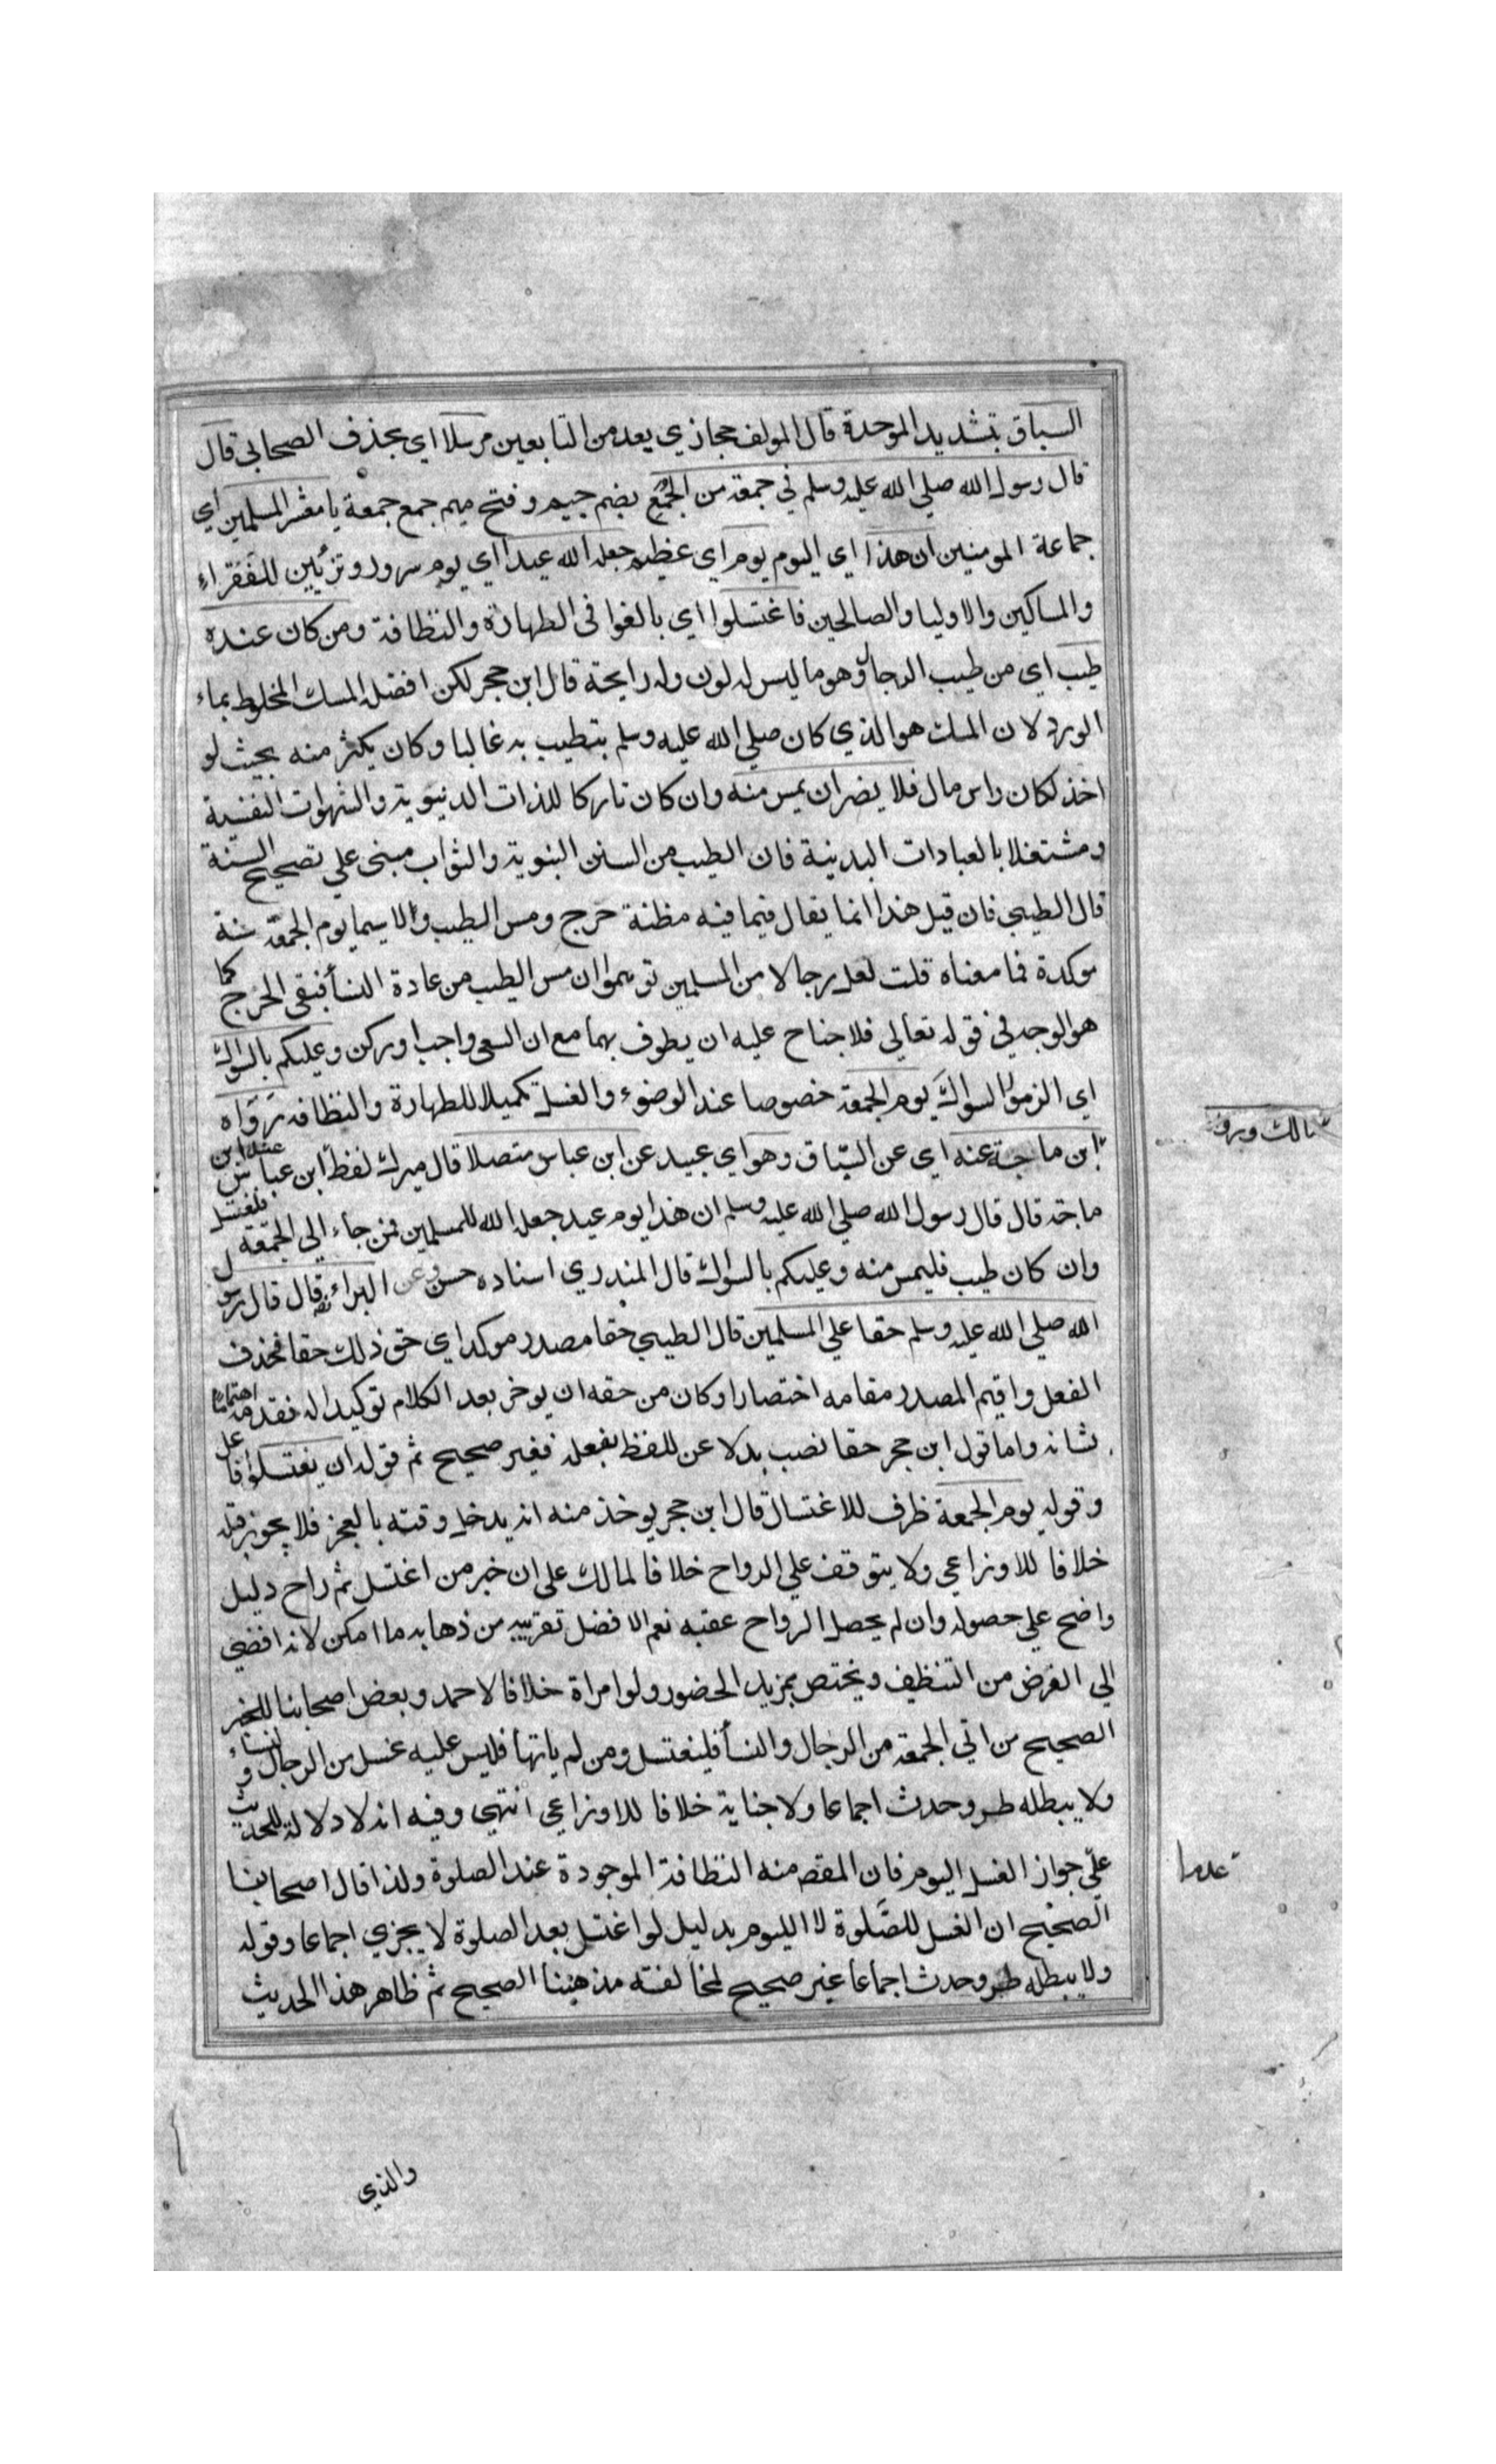 السباق بتشديد الموحدة قال المولف حجازي يعد من التابعين مرسلا اي بحذف الصحابي قال
قال رسول الله صلي الله عليه وسلم في جمعة من الجُمَع بضم جيم وفتح ميم جمع جمعة يا معشر المسلمين اي
جماعة المومنين ان هذا اي اليوم يوم اي عظيم جعله الله عيدا اي يوم سرور وتزئين للفقراء
والمساكين والاوليا والصالحين فاغتسلوا اي بالغوا في الطهارة والنظافة ومن كان عنده
طيب اي من طيب الرجال وهو ما ليس له لون وله رايحة قال ابن حجر لكن افضله المسك المخلوط بماء
الورد لان المسك هو الذي كان صلي الله عليه وسلم يتطيب به غالبا وكان يكثر منه بحيث لو
اخذ لكان راس مال فلا يضر ان يمس منه وان كان تاركا للذات الدنيوية والشهوات النفسية
ومشتغلا بالعبادات البدنية فان الطيب من السنن النبوية والثواب مبني علي تصحيح السنة
قال الطيبي فان قيل هذا انما يقال فيما فيه مظنة حرج ومس الطيب ولا سيما يوم الجمعة سنة
موكدة فما معناه قلت لعل رجالا من المسلمين توهموا ان مس الطيب من عادة النسأ فنفي الحرج كما
هو الوجه في قوله تعالي فلا جناح عليه ان يطوف بهما مع ان السعي واجب او ركن وعليكم بالسواك
اي الزموا السواك يوم الجمعة خصوصا عند الوضوء والغسل تكميلا للطهارة والنظافة رواه
مالك ورواه
ابن ماجة عنه اي عن السّباق وهو اي عبيد عن ابن عباس متصلا قال ميرك لفظ ابن عباس عند ابن
ماجة قال قال رسول الله صلي الله عليه وسلم ان هذا يوم عيد جعله الله للمسلمين فمن جاء الي الجمعة فليغتسل
وان كان طيب فليمس منه وعليكم بالسواك قال المنذري اسناده حسن وعن البراء قال قال رسول
الله صلي الله عليه وسلم حقا علي المسلمين قال الطيبي حقا مصدر موكد اي حق ذلك حقا فحذف
الفعل واقيم المصدر مقامه اختصارا وكان من حقه ان يوخر بعد الكلام توكيدا له فقدمه اهتماما
بشانه واما قول ابن حجر حقا نصب بدلا عن للفظ بفعله فغير صحيح ثم قوله ان يغتسلوا فاعل
وقوله يوم الجمعة ظرف للاغتسال قال ابن حجر يوخذ منه انه يدخل وقته بالفجر فلا يجوز قبله
خلافا للاوزاعي ولا يتوقف علي الرواح خلافا لمالك علي ان خبر من اغتسل ثم راح دليل
واضح علي حصوله وان لم يحصل الرواح عقبه نعم الافضل تقريبه من ذهابه ما امكن لانه افضي
الي الغرض من التنظيف ويختص بمزيد الحضور ولو امراة خلافا لاحمد وبعض اصحابنا للخبر
الصحيح من اتي الجمعة من الرجال والنسأ فليغتسل ومن لم ياتها فليس عليه غسل من الرجال والنساء
ولا يبطله طرو حدث اجماعا ولا جنابة خلافا للاوزاعي انتهي وفيه انه لا دلالة للحديث
علي جواز الغسل اليوم فان المقصد منه النظافة الموجودة عند الصلوة ولذا قال اصحابنا
الصحيح ان الغسل للصّلوة لا اليوم بدليل لو اغتسل بعد الصلوة لا يجزي اجماعا وقوله
ولا يبطله طرو حدث اجماعا غير صحيح لمخالفته مذهبنا الصحيح ثم ظاهر هذا الحديث
والذي